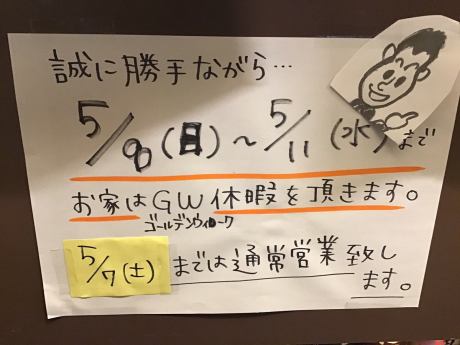 誠に勝手ながら…
5/8(日)〜5/11(水)まで
お家はGW休暇を頂きます。
ゴールデンウィーク
5/7(土)までは通常営業致し
ます。